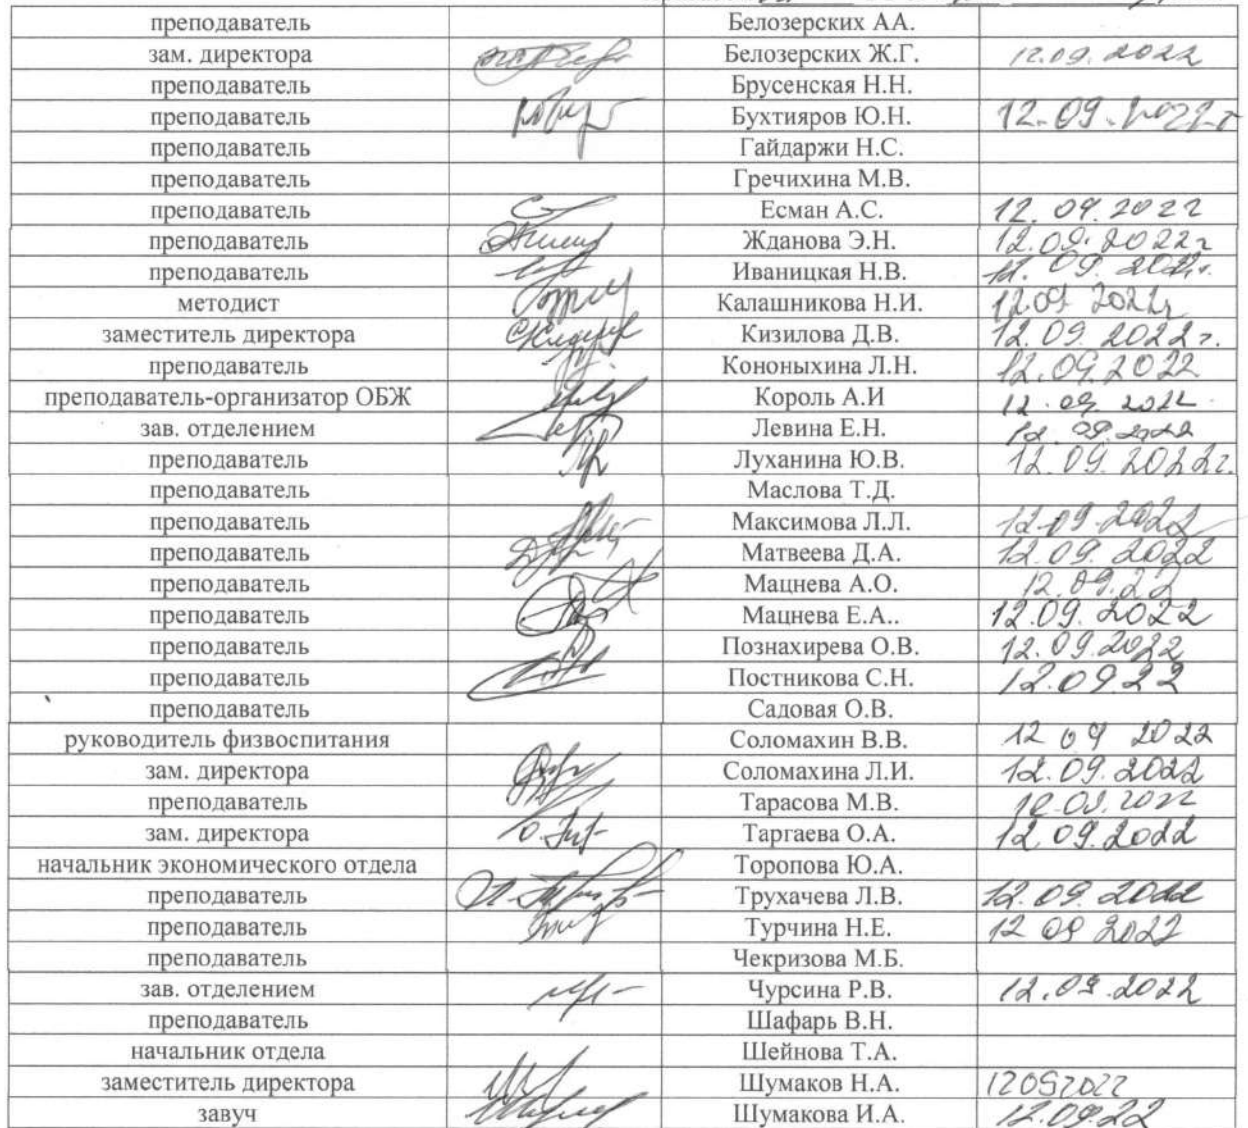 преподаватель Белозерских А.А.
зам. директора Белозерских Ж.Г. 12.09.2022
преподаватель Брусенская Н.Н.
преподаватель Бухтияров Ю.Н. 12.09.2022г
преподаватель Гайдаржи Н.С.
преподаватель Гречихина М.В.
преподаватель Есман А.С. 12.09.2022
преподаватель Жданова Э.Н. 12.09.2022г
преподаватель Иваницкая Н.В. 12.09.2022г.
методист Калашникова Н.И. 12.09 2022г
заместитель директора Кизилова Д.В. 12.09.2022г.
преподаватель Кононыхина Л.Н. 12.09.2022
преподаватель-организатор ОБЖ Король А.И 12.09.2022
зав. отделением Левина Е.Н. 12.09.2022
преподаватель Луханина Ю.В. 12.09.2022г.
преподаватель Маслова Т.Д.
преподаватель Максимова Л.Л. 12.09.2022
преподаватель Матвеева Д.А. 12.09.2022
преподаватель Мацнева А.О. 12.09.22
преподаватель Мацнева Е.А.. 12.09.2022
преподаватель Познахирева О.В. 12.09.2022
преподаватель Постникова С.Н. 12.09.22
преподаватель Садовая О.В.
руководитель физвоспитания Соломахин В.В. 12 09 2022
зам. директора Соломахина Л.И. 12.09.2022
преподаватель Тарасова М.В.
зам. директора Таргаева О.А. 12.09.2022
начальник экономического отдела Торопова Ю.А.
преподаватель Трухачева Л.В. 12.09.2022
преподаватель Турчина Н.Е. 12 09 2022
преподаватель Чекризова М.Б.
зав. отделением Чурсина Р.В. 12.09.2022
преподаватель Шафарь В.Н.
начальник отдела Шейнова Т.А.
заместитель директора Шумаков Н.А. 12092022
завуч Шумакова И.А. 12.09.22